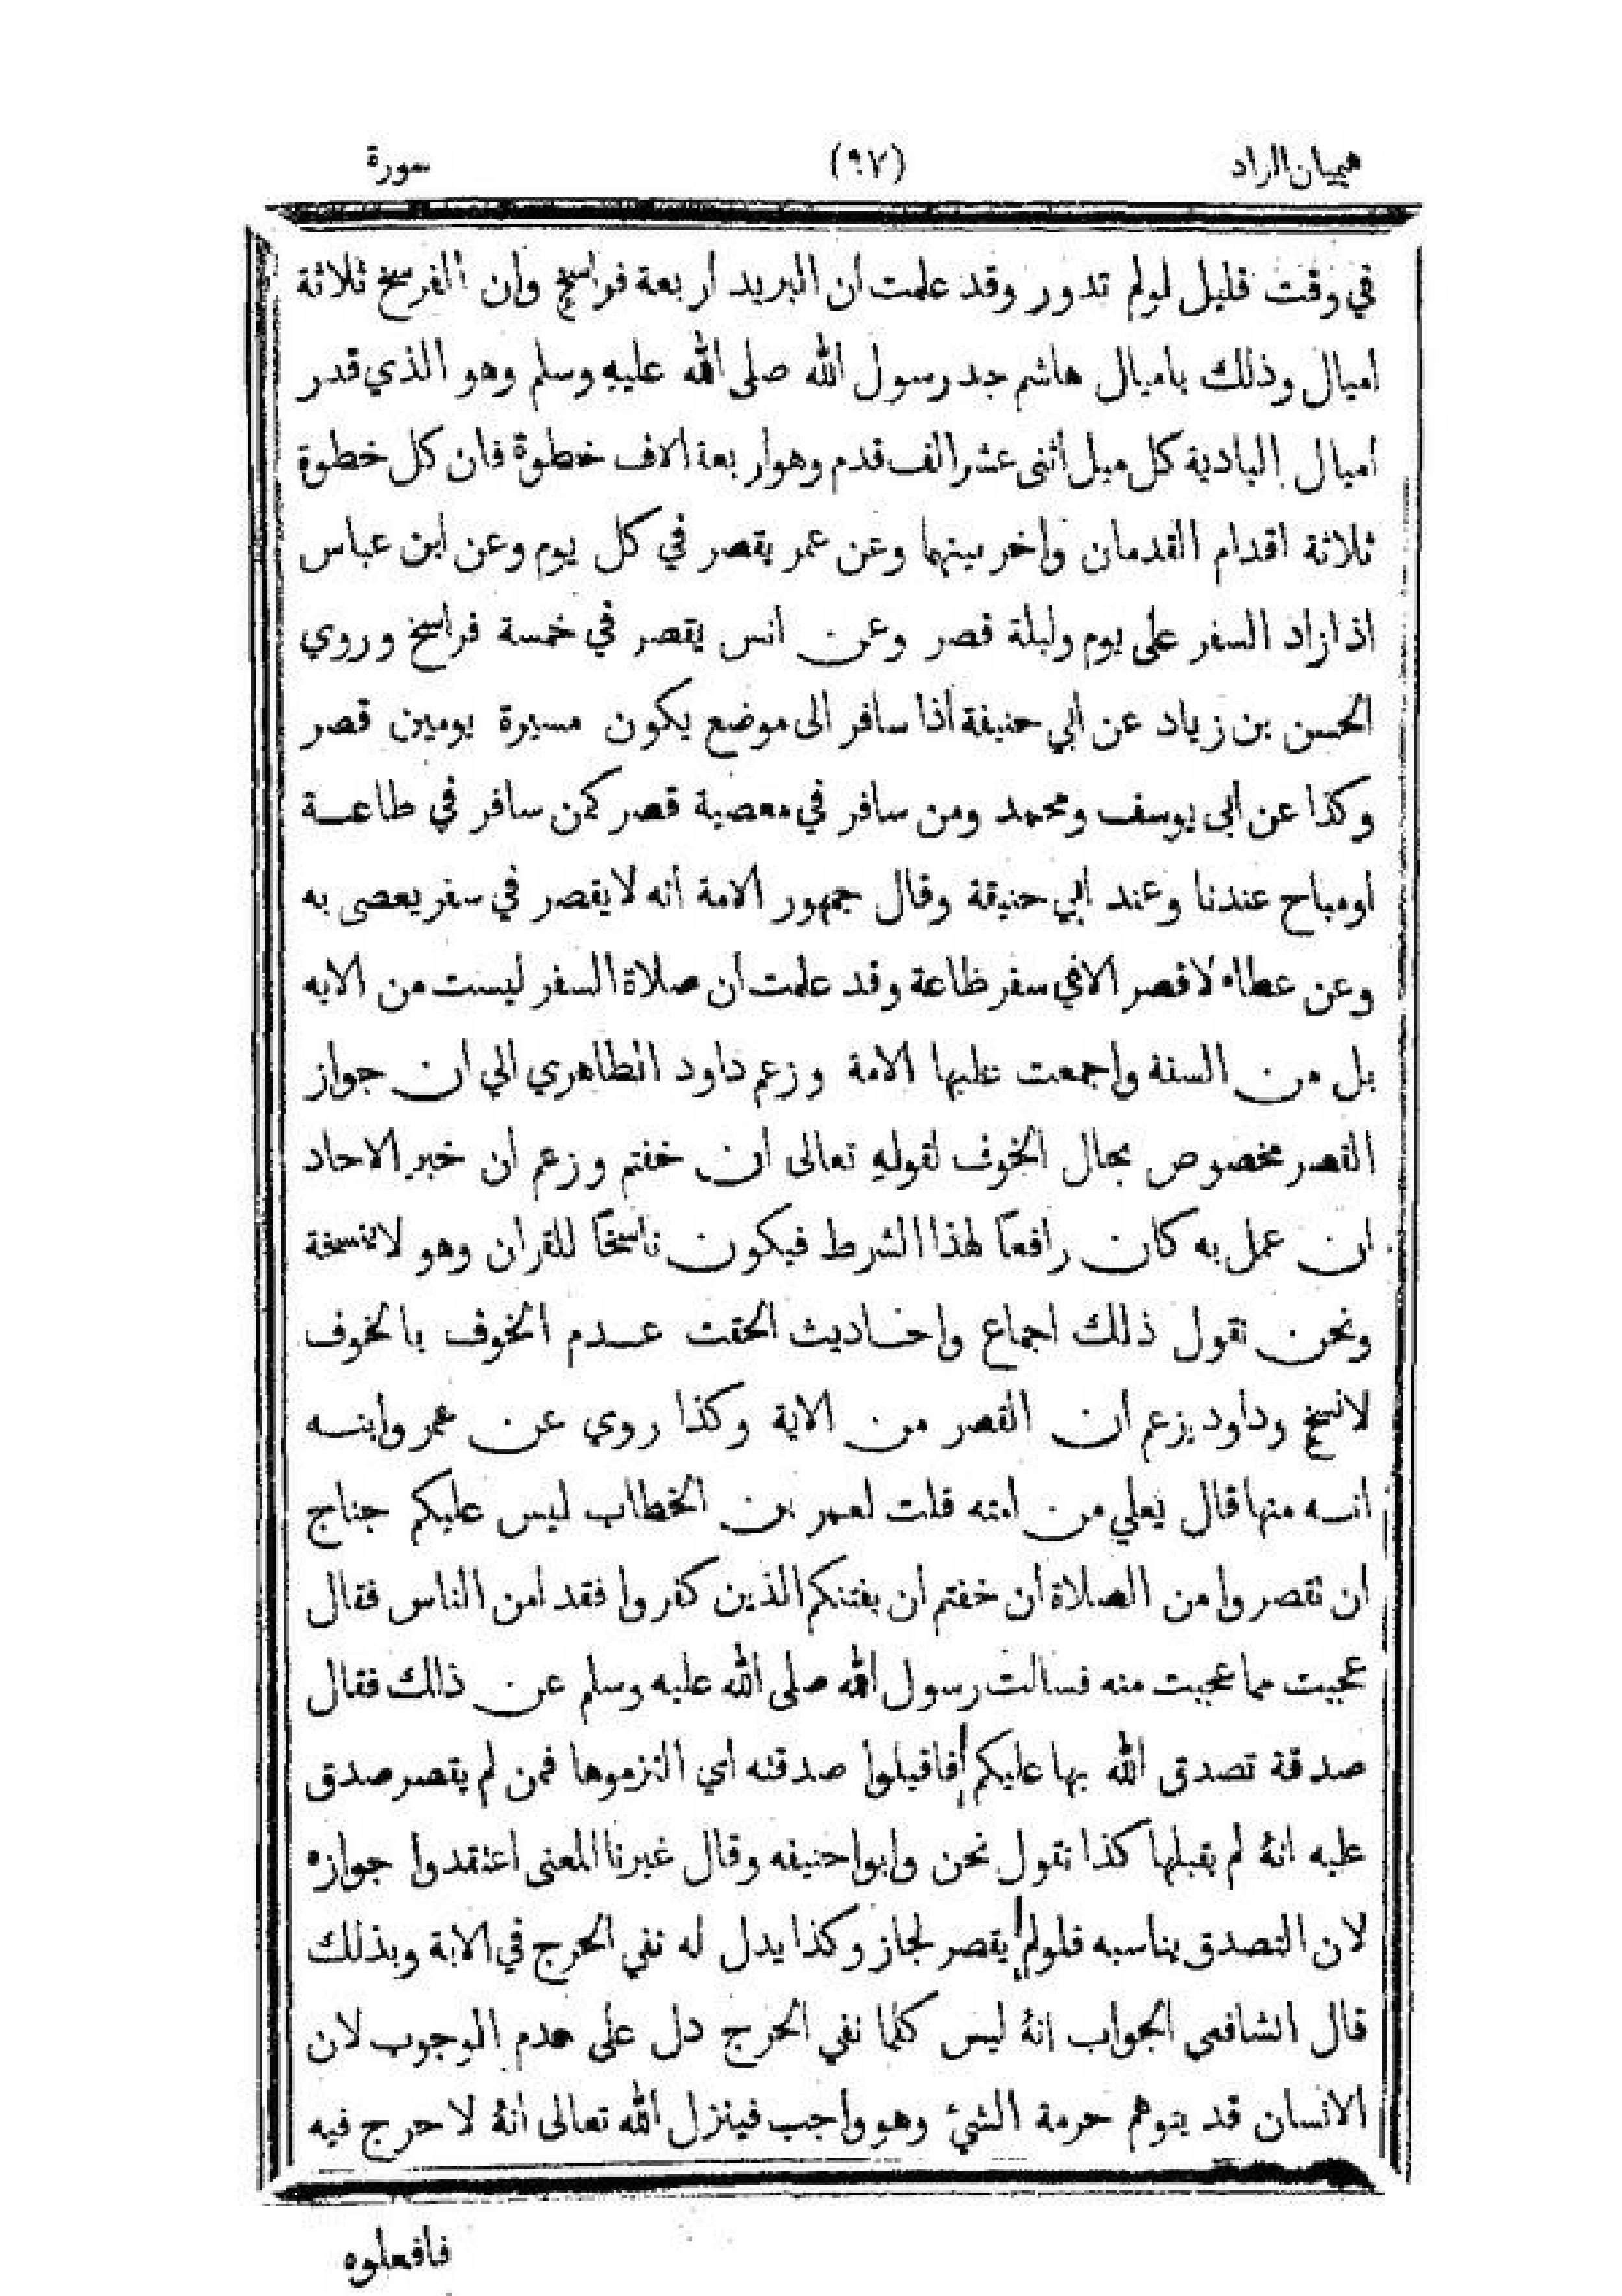 هيميان الزاد (٩٧) سورة
في وقت قليل لولم تدور وقد علمت ان البريد اربعة فراسخ وان الفرسخ ثلاثة
اميال وذلك باميال هاشم جد رسول الله صلى الله عليه وسلم وهو الذي قدر
اميال البادية كل ميل اثنى عشر الف قدم وهوار بعة الاف خطوة فان كل خطوة
ثلاثة اقدام القدمان واخر بينهما وعن عمر يقصر في كل يوم وعن ابن عباس
اذا زاد السفر على يوم وليلة قصر وعن انس يقصر في خمسة فراسخ وروي
الحسن بن زياد عن ابي حنيفة اذا سافر الى موضع يكون مسيرة يومين قصر
وكذا عن ابى يوسف ومحمد ومن سافر في معصية قصر كمن سافر في طاعة
او مباح عندنا وعند ابي حنيقة وقال جمهور الامة انه لا يقصر في سفر يعصى به
وعن عطاء لا قصر الا في سفر ظاعة وقد علمت ان صلاة السفر ليست من الايه
بل من السنة واجمعت عليها الامة وزعم داود الظاهري الي ان جواز
القصر مخصوص بحال الخوف لقوله تعالى ان خفتم وزعم ان خبر الاحاد
ان عمل به كان رافعًا لهذا الشرط فيكون ناسخًا للقران وهو لا ينسخة
ونحن نقول ذلك اجماع واحاديث الحقت عدم الخوف بالخوف
لا نسخ وداود يزعم ان القصر من الاية وكذا روي عن عمر وابنه
انه منها قال يعلي من امته قلت لعمر بن الخطاب ليس عليكم جناح
ان تقصروا من الصلاة ان خفتم ان يفتنكم الذين كفروا فقد امن الناس فقال
عجبت مما عجبت منه فسالت رسول الله صلى الله عليه وسلم عن ذالك فقال
صدقة تصدق الله بها عليكم فاقبلوا صدقته اي التزموها فمن لم يقصر صدق
عليه انهُ لم يقبلها كذا نقول نحن وابوا حنيفه وقال غيرنا المعنى اعتقدوا جوازه
لان التصدق يناسبه فلولم يقصر لجاز وكذا يدل له نفي الحرج في الاية وبذلك
قال الشافعي الجواب انهُ ليس كلما نفي الحرج دل على عدم الوجوب لان
الانسان قد يتوهم حرمة الشيء وهو واجب فينزل الله تعالى انهُ لا حرج فيه
فافعلوه